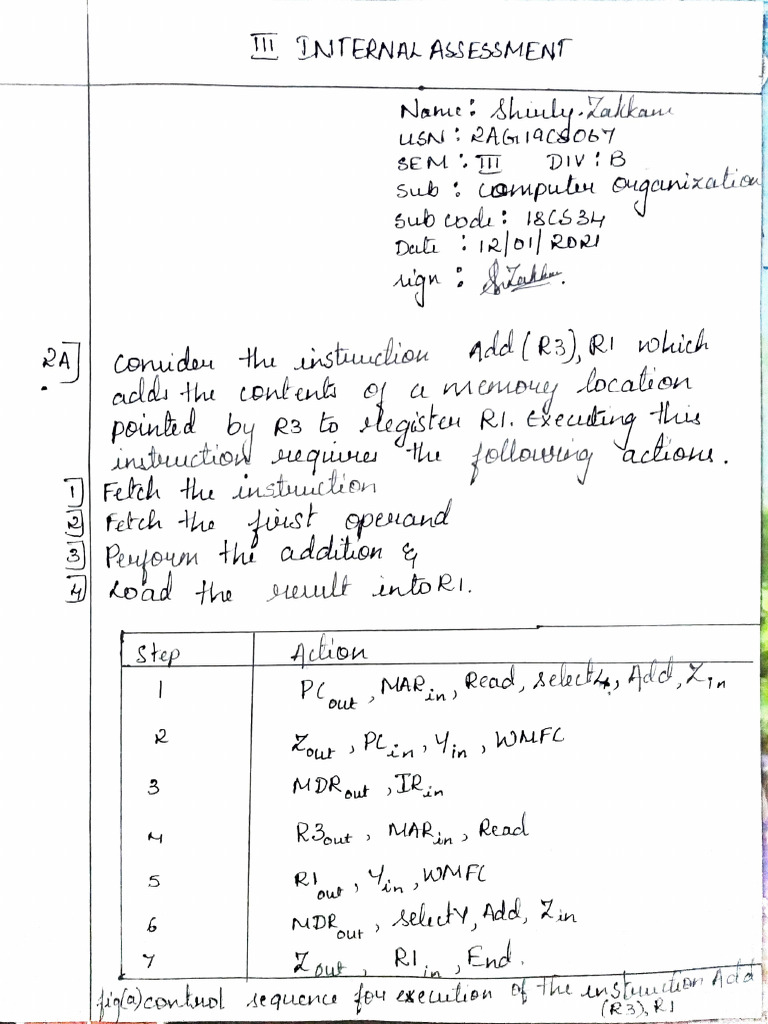 III INTERNAL ASSESSMENT
Name: Shirly.Zakkam
USN: 2AG19CS067
SEM: III DIV: B
Sub: Computer Organization
Sub code: 18CS34
Date: 12/01/2021
sign: S.Zakkam.
2A] Consider the instruction Add(R3), R1 which
adds the contents of a memory location
pointed by R3 to register R1. Executing this
instruction requires the following actions.
1] Fetch the instruction
2] Fetch the first operand
3] Perform the addition &
4] Load the result into R1.
Step Action
1 PCout, MARin, Read, select4, Add, Zin
2 Zout, PCin, Yin, WMFC
3 MDRout, IRin
4 R3out, MARin, Read
5 R1out, Yin, WMFC
6 MDRout, selectY, Add, Zin
7 Zout, R1in, End.
fig(a) control sequence for execution of the instruction Add
(R3), R1